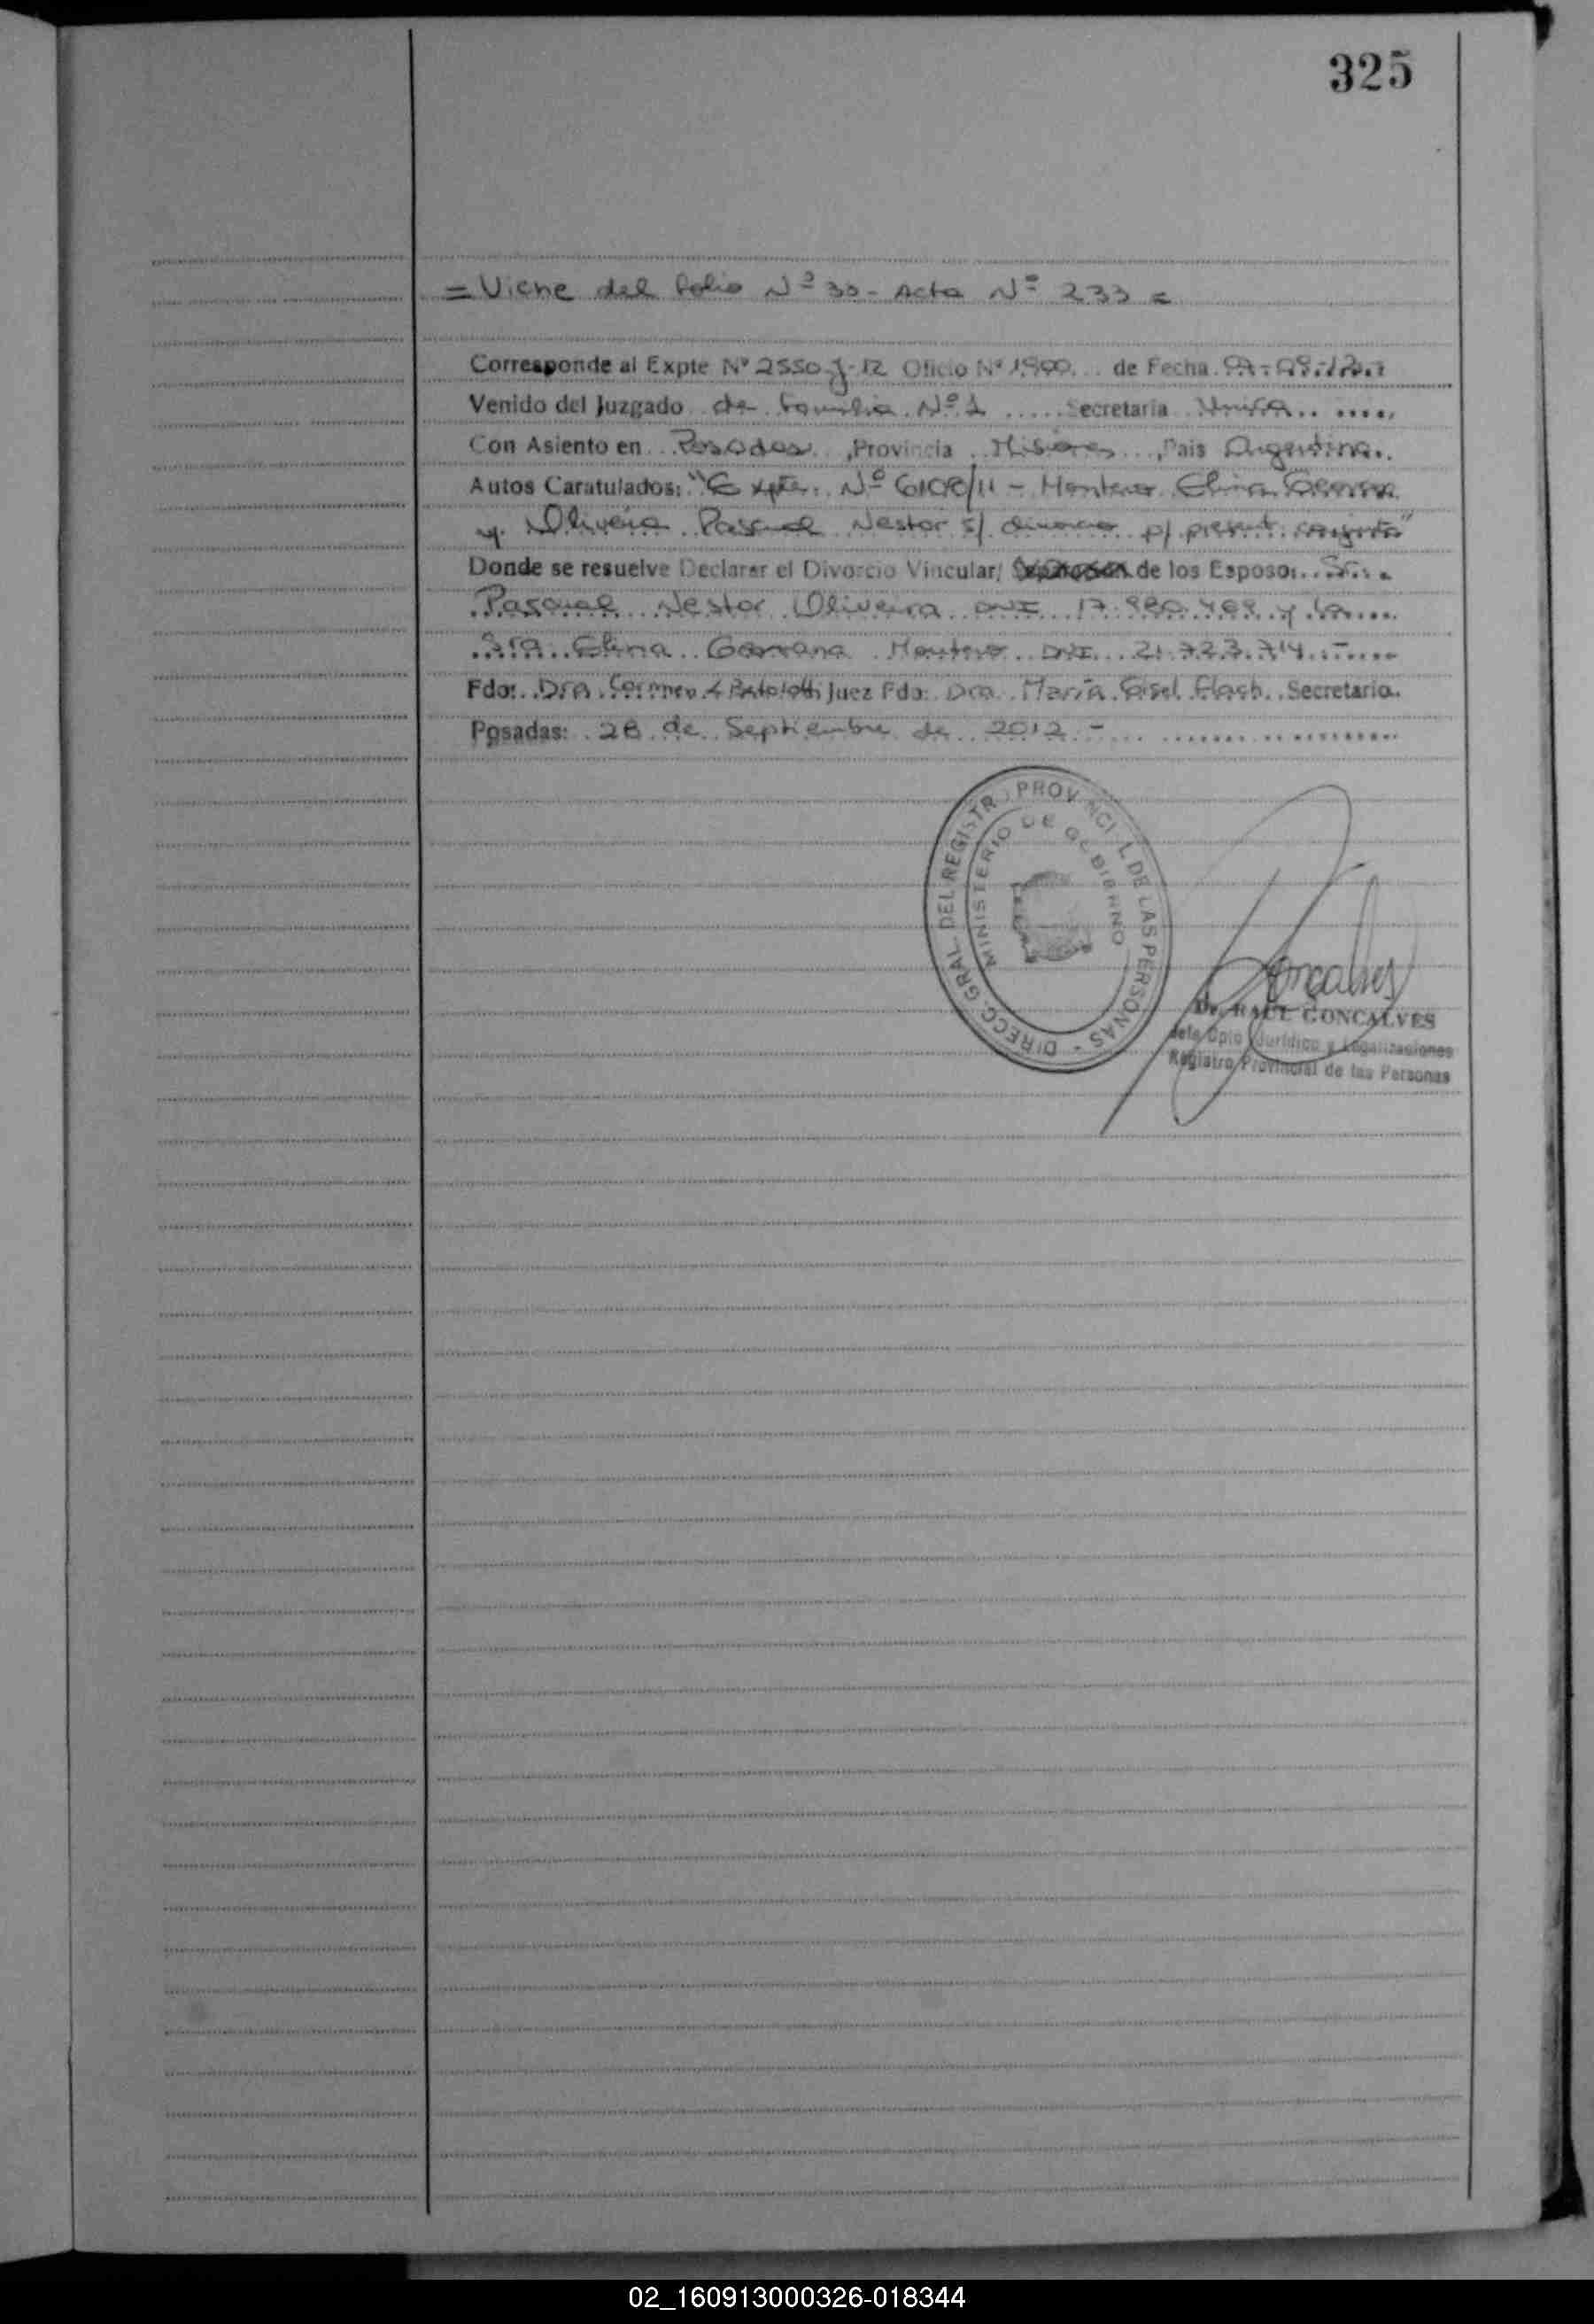 325
= Viene del folio Nº 30 - Acta Nº 233 =
Corresponde al Expte Nº 2550-J-12 Oficio Nº 1900 de Fecha
Venido del Juzgado de Familia Nº 1 ..... Secretaria Unica .. ....,
Con Asiento en Posadas ,Provincia Misiones ,Pais Argentina.
Autos Caratulados: "Expte. Nº 6108/11 - Montero Elina
y Oliveira Pascual Nestor s/ divorcio p/ present. conjunta"
Donde se resuelve Declarar el Divorcio Vincular/ de los Esposo: Sr.
Pascual Nestor Oliveira DNI 17.980.469 y la
Sra Elina Montero DNI 21.723.714.-
Fdo: Dra. Carmen Juez Fdo: Dra. María Gisel Secretaria.
Posadas: 28 de Septiembre de 2012 -
DIRECC. GRAL. DEL REGISTRO PROVINCIAL DE LAS PERSONAS -
MINISTERIO DE GOBIERNO
Goncalves
Dr. RAUL GONCALVES
Jefe Dpto Jurídico y Legalizaciones
Registro Provincial de las Personas
02_160913000326-018344